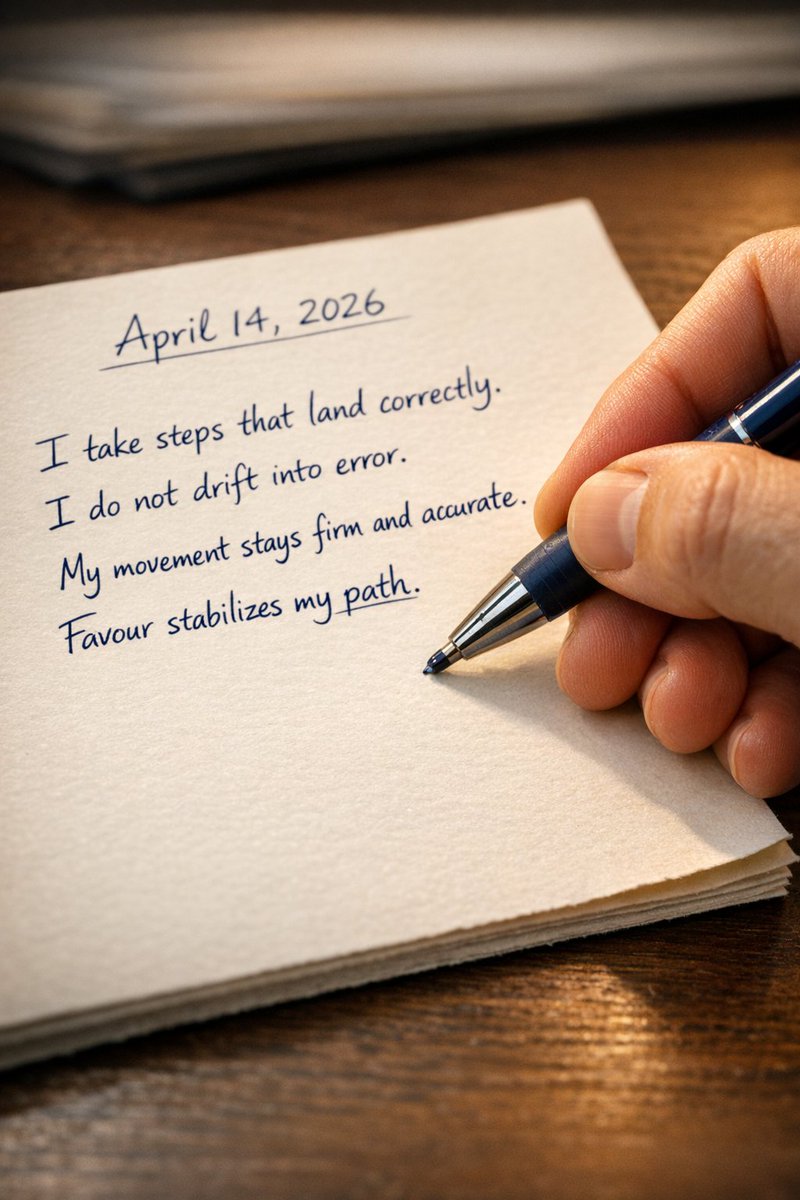 April 14, 2026
I take steps that land correctly.
I do not drift into error.
My movement stays firm and accurate.
Favour stabilizes my path.